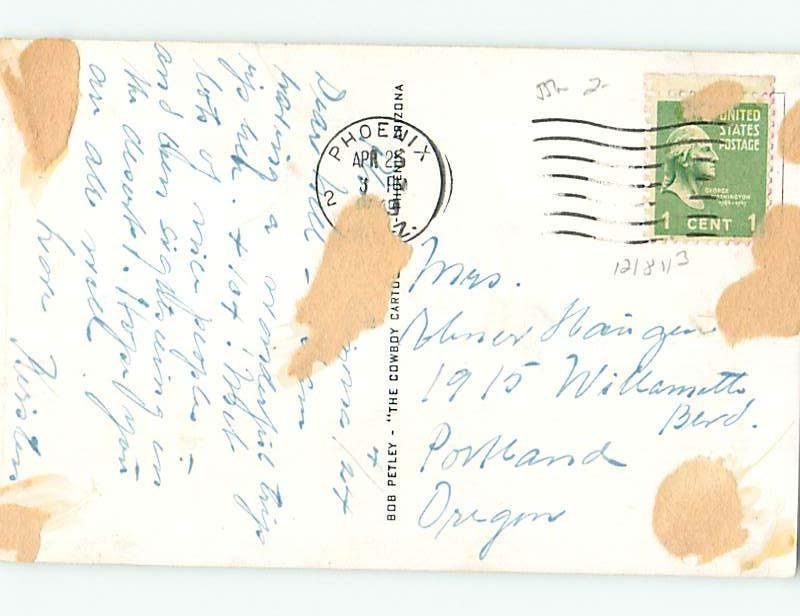 Phoenix 4/24
Dear All - Am
having a wonderful trip
rip lah. & lot. met
lots of nice people -
and then sightseeing in
the desert. Hope you
are all well.
Love Kirsten
BOB PETLEY - "THE COWBOY CARTOO PHOENIX, ARIZONA
PHOENIX
APR 25
3 PM
2
UNITED
STATES
POSTAGE
GEORGE
WASHINGTON
1 CENT 1
12/8/13
Mrs.
Elmer
1915 Willamette
Blvd.
Portland
Oregon